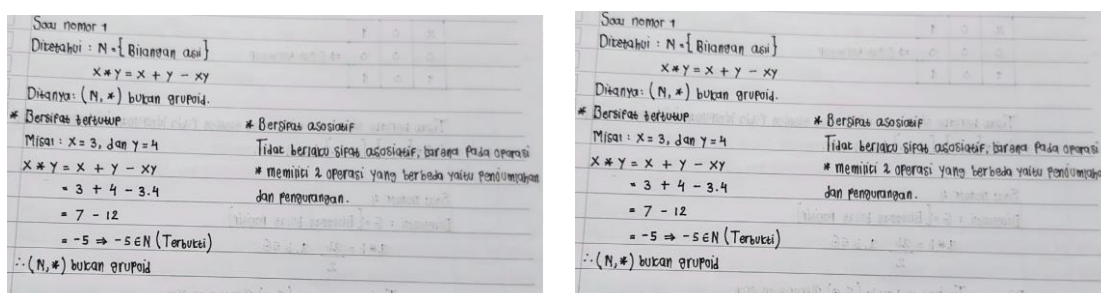 Soal nomor 1
Diketahui : N = { Bilangan asli }
x * y = x + y - xy
Ditanya : (N, *) bukan grupoid.
* Bersifat tertutup
Misal : x = 3, dan y = 4
x * y = x + y - xy
= 3 + 4 - 3.4
= 7 - 12
= -5 ⇒ -5 ∈ N (Terbukti)
∴ (N, *) bukan grupoid
* Bersifat asosiatif
Tidak berlaku sifat asosiatif, karena pada operasi
* memiliki 2 operasi yang berbeda yaitu penjumlahan
dan pengurangan.
Soal nomor 1
Diketahui : N = { Bilangan asli }
x * y = x + y - xy
Ditanya : (N, *) bukan grupoid.
* Bersifat tertutup
Misal : x = 3, dan y = 4
x * y = x + y - xy
= 3 + 4 - 3.4
= 7 - 12
= -5 ⇒ -5 ∈ N (Terbukti)
∴ (N, *) bukan grupoid
* Bersifat asosiatif
Tidak berlaku sifat asosiatif, karena pada operasi
* memiliki 2 operasi yang berbeda yaitu penjumlah
dan pengurangan.